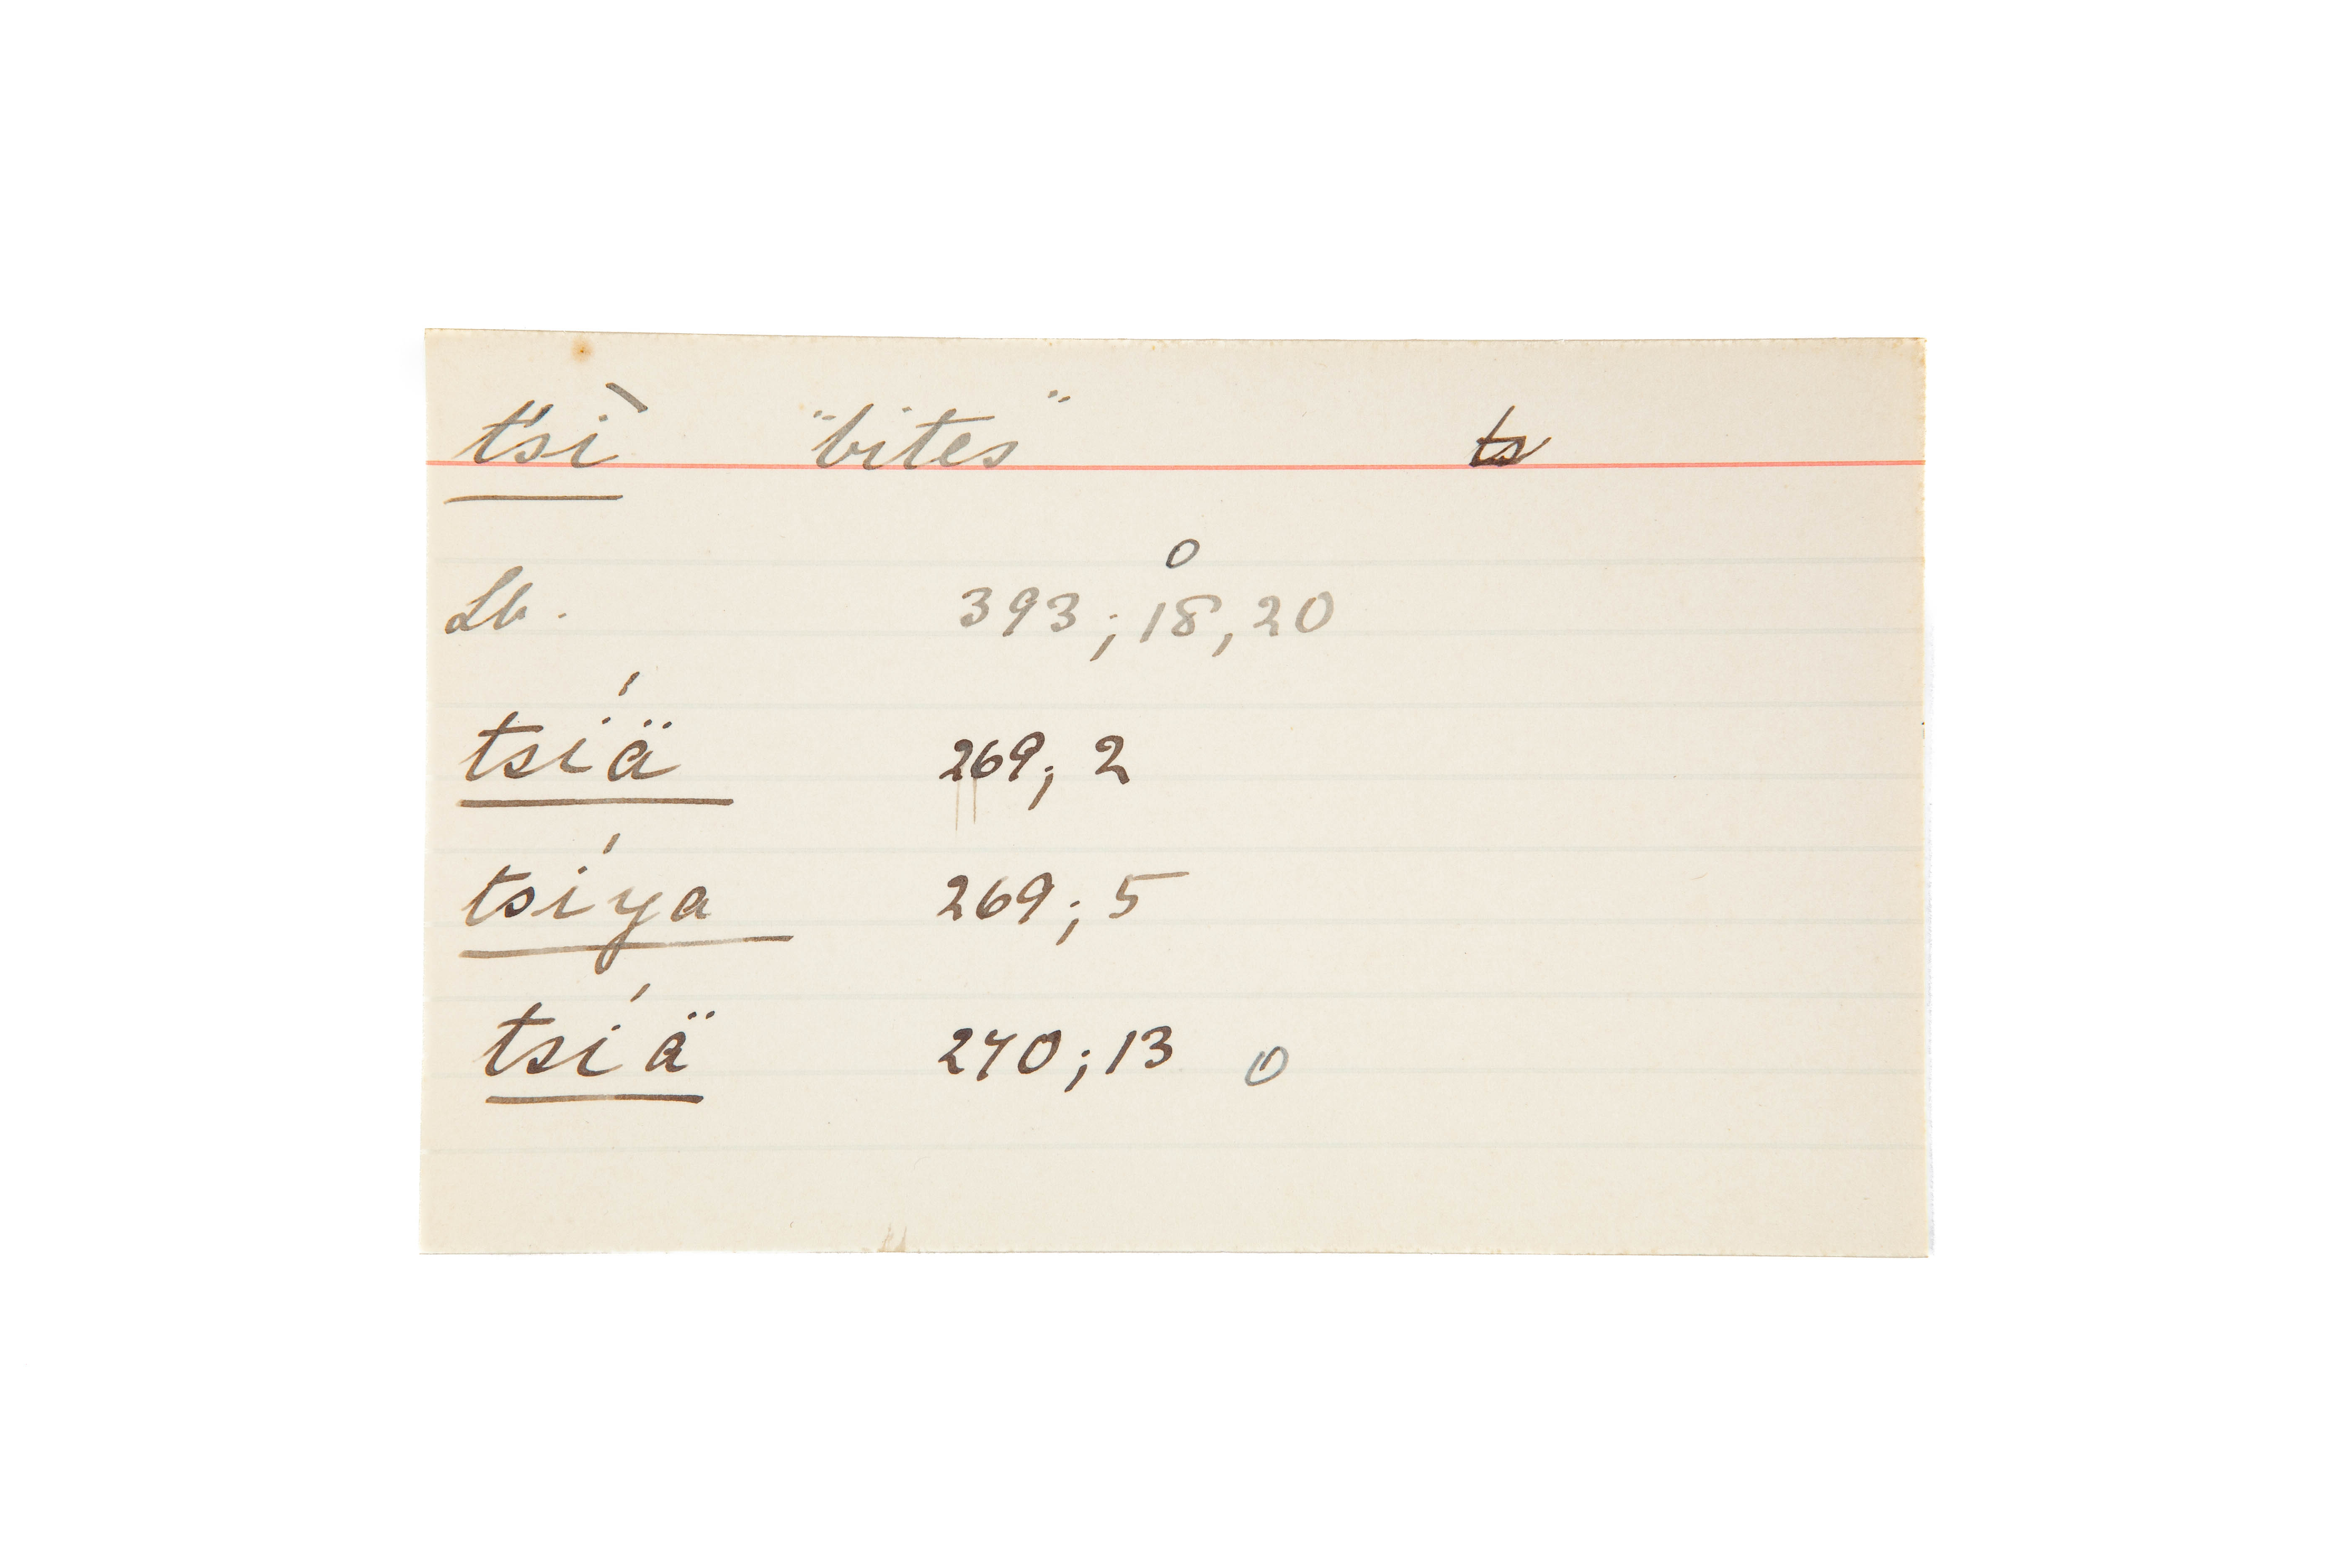 t'sì "bites" ts
o
Lb. 393; 18, 20
tsï'ä 269; 2
tsi'ya 269; 5
tsi'ä 270; 13 o